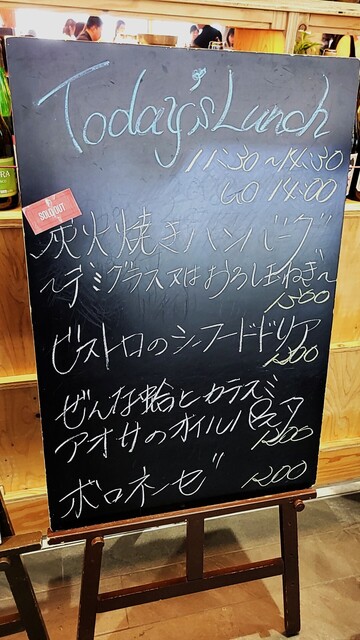 Today's Lunch
11:30~14:30
LO 14:00
SOLD OUT
炭火焼きハンバーグ
~デミグラス又はおろし玉ねぎ~
1350
ビストロのシーフードドリア
1200
ぜんな蛤とカラスミ
アオサのオイルパスタ
1200
ボロネーゼ 1200